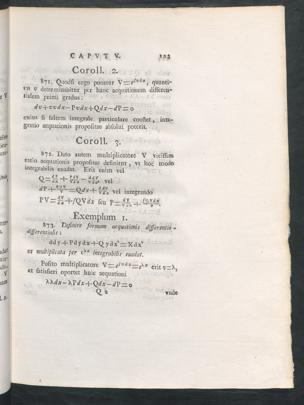 CAPVT V. 123
Coroll. 2.
871. Quodſi ergo ponatur V=e^{∫vdx}, quanti-
tas v determinabitur per hanc aequationem differen-
tialem primi gradus:
dv+vvdx−Pvdx+Qdx−dP=0
cuius ſi ſaltem integrale particulare conſtet, inte-
gratio aequationis propoſitae abſolui poterit.
Coroll. 3.
872. Dato autem multiplicatore V viciſſim
ratio aequationis propoſitae definitur, vt hoc modo
integrabilis euadat. Erit enim vel
vel
vel integrando
ſeu
Exemplum 1.
873. Definire formam aequationis differentio-
differentialis:
ddy+Pdydx+Qydx²=Xdx²
vt multiplicata per e^{λx} integrabilis euadat.
Poſito multiplicatore V=e^{∫vdx}=e^{λx} erit v=λ,
et ſatisfieri oportet huic aequationi
λλdx−λPdx+Qdx−dP=0
Q 2 vnde